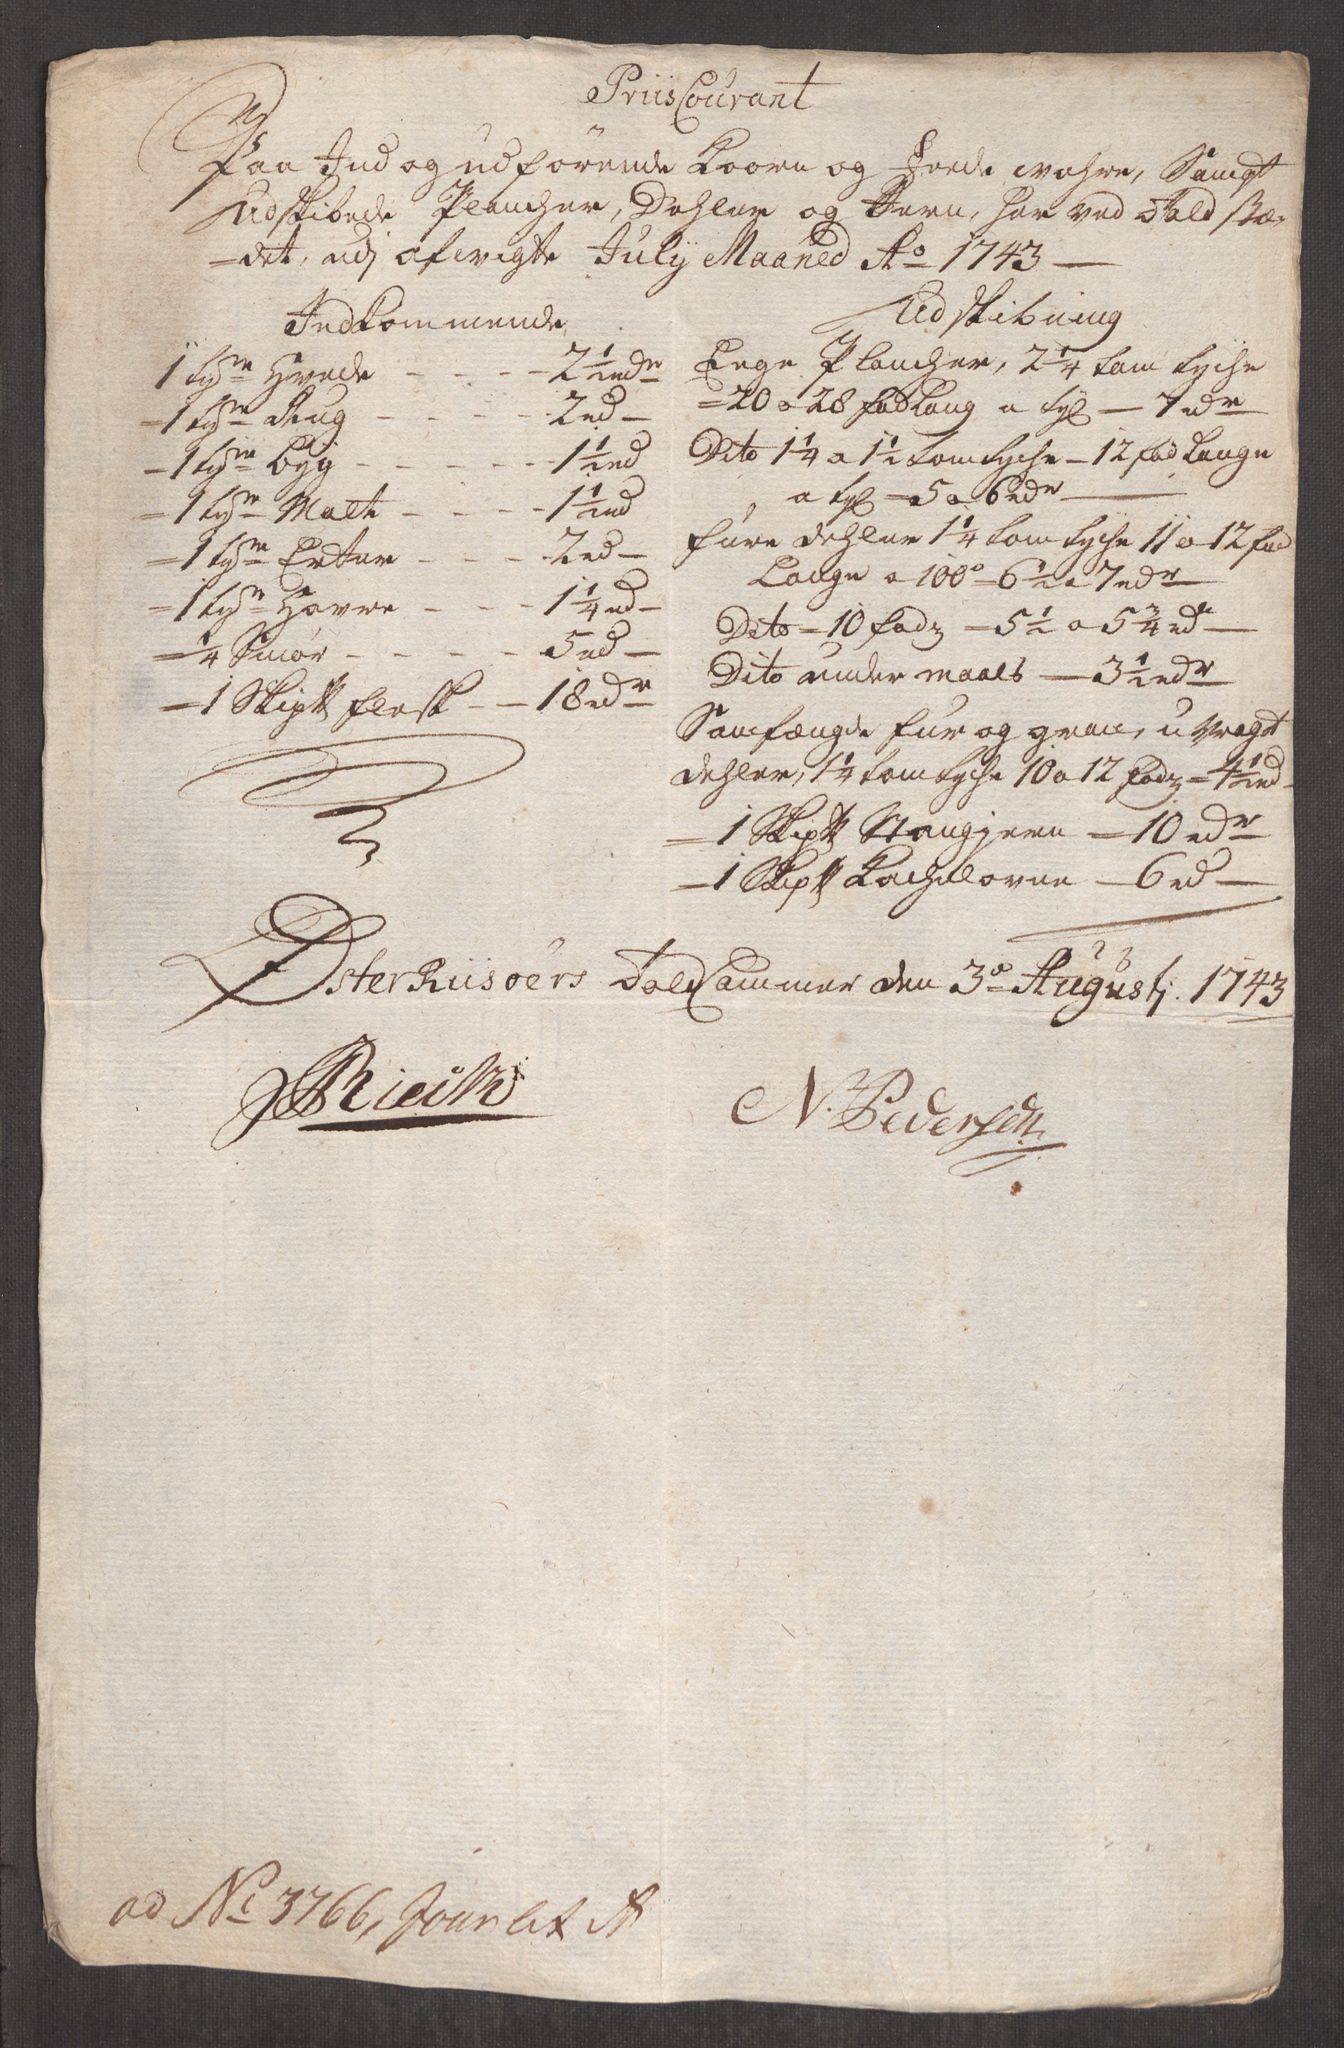 Priis Courant
Paa Ind og udförende Koorn og Feede wahre, Sampt
Udskibede Plancher, Dehler og Jern, her ved Told stæ-
-det, udj afvigte July Maaned Ao 1743
Indkommende
1 tge Hvede - - - - 2 1/2 rdr
1 tge Rug - - - - 2 rd
1 tge Byg - - - - 1 1/2 rd
1 tge Malt - - - - 1 1/2 rd
1 tge Erter - - - 2 rd
1 tge Havre - - - 1 1/4 rd
1/4 Smør - - - - 5 rd
1 Skip℔ Flesk - - 18 rdr
Udskibning
Eege Plancher, 2 1/4 tom tyche
20 a 28 fod Lang a tyl - 7 rdr
Dito 1 1/4 a 1 1/2 tom tyche - 12 fod Lange
a tyl - 5 a 6 rdr
Fure dehler 1 1/4 tom tyche 11 a 12 fod
Lange a 100 - 6 1/2 a 7 rdr
Dito - 10 fods - 5 1/2 a 5 3/4 rdr
Dito under maals - 3 1/2 rdr
Samfængde fur og gran, u vragt
dehler, 1 1/4 tom tyche 10 a 12 fods - 4 1/2 rd
1 Skip℔ Stangjern - 10 rdr
1 Skip℔ Kachelovne - 6 rd
Østerriisøers Told Cammer den 3 Augustj. 1743
N. Pedersen
ad No 3766, Jour lit A